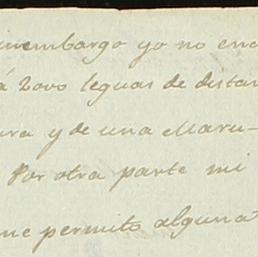 embargo yo no enc
á 2000 leguas de distan
ura y de una Maru-
Por otra parte mi
me permito alguna